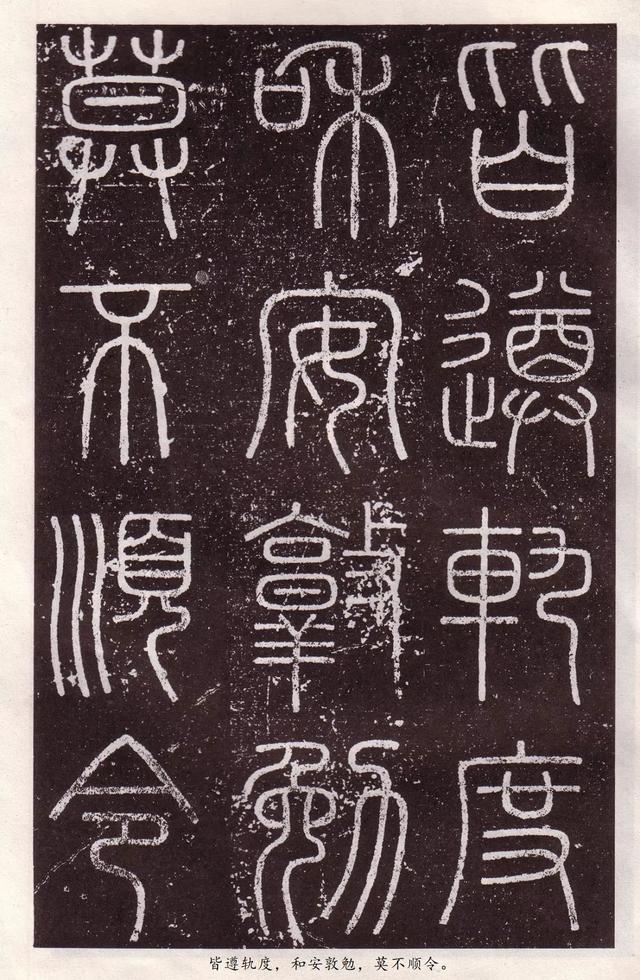 皆遵軌度
和安敦勉
莫不順令
皆遵轨度，和安敦勉，莫不顺令。